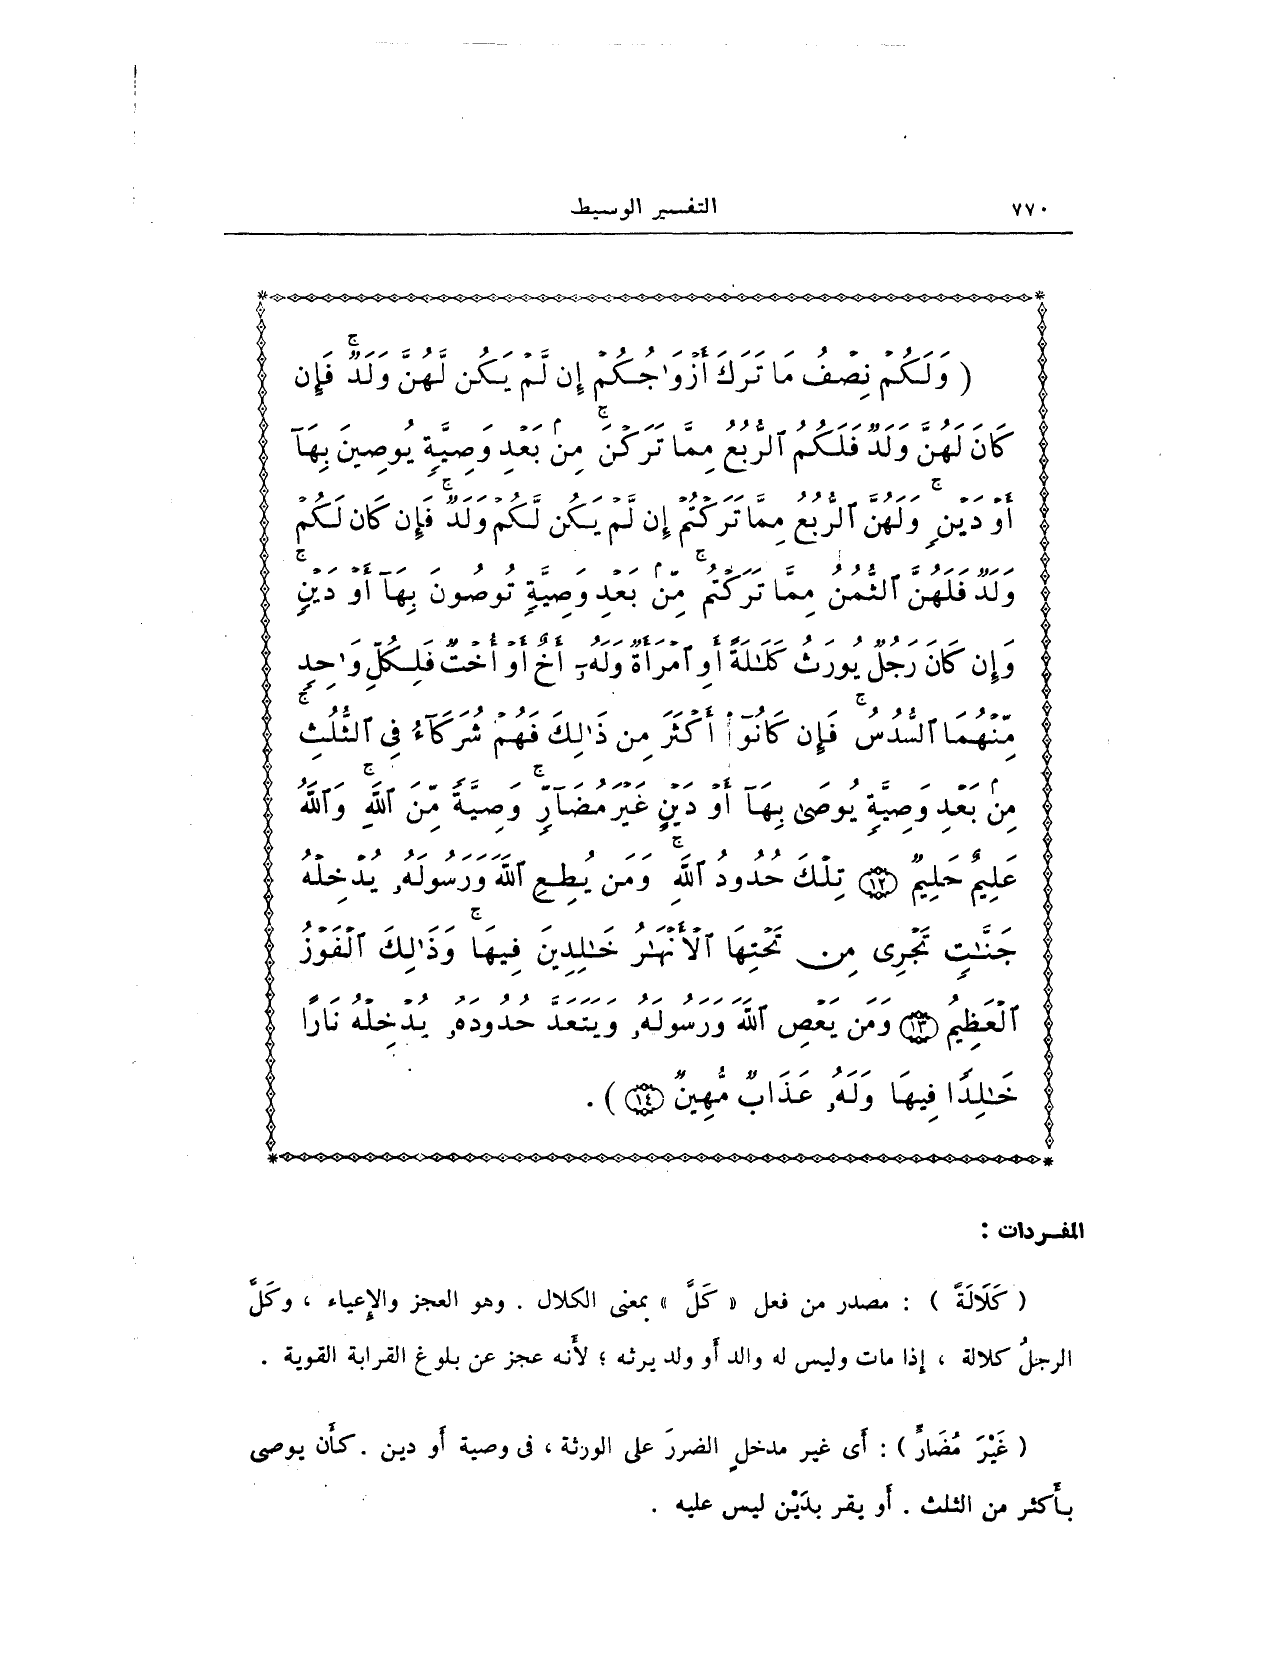 ٧٧٠ التفسير الوسيط
( وَلَكُمْ نِصْفُ مَا تَرَكَ أَزْوَٰجُكُمْ إِن لَّمْ يَكُن لَّهُنَّ وَلَدٌ ۚ فَإِن
كَانَ لَهُنَّ وَلَدٌ فَلَكُمُ ٱلرُّبُعُ مِمَّا تَرَكْنَ ۚ مِنۢ بَعْدِ وَصِيَّةٍ يُوصِينَ بِهَآ
أَوْ دَيْنٍ ۚ وَلَهُنَّ ٱلرُّبُعُ مِمَّا تَرَكْتُمْ إِن لَّمْ يَكُن لَّكُمْ وَلَدٌ ۚ فَإِن كَانَ لَكُمْ
وَلَدٌ فَلَهُنَّ ٱلثُّمُنُ مِمَّا تَرَكْتُم ۚ مِّنۢ بَعْدِ وَصِيَّةٍ تُوصُونَ بِهَآ أَوْ دَيْنٍ ۗ
وَإِن كَانَ رَجُلٌ يُورَثُ كَلَـٰلَةً أَوِ ٱمْرَأَةٌ وَلَهُۥٓ أَخٌ أَوْ أُخْتٌ فَلِكُلِّ وَٰحِدٍ
مِّنْهُمَا ٱلسُّدُسُ ۚ فَإِن كَانُوٓا۟ أَكْثَرَ مِن ذَٰلِكَ فَهُمْ شُرَكَآءُ فِى ٱلثُّلُثِ ۚ
مِنۢ بَعْدِ وَصِيَّةٍ يُوصَىٰ بِهَآ أَوْ دَيْنٍ غَيْرَ مُضَآرٍّ ۚ وَصِيَّةً مِّنَ ٱللَّهِ ۗ وَٱللَّهُ
عَلِيمٌ حَلِيمٌ ﴿١٢﴾ تِلْكَ حُدُودُ ٱللَّهِ ۚ وَمَن يُطِعِ ٱللَّهَ وَرَسُولَهُۥ يُدْخِلْهُ
جَنَّـٰتٍ تَجْرِى مِن تَحْتِهَا ٱلْأَنْهَـٰرُ خَـٰلِدِينَ فِيهَا ۚ وَذَٰلِكَ ٱلْفَوْزُ
ٱلْعَظِيمُ ﴿١٣﴾ وَمَن يَعْصِ ٱللَّهَ وَرَسُولَهُۥ وَيَتَعَدَّ حُدُودَهُۥ يُدْخِلْهُ نَارًا
خَـٰلِدًا فِيهَا وَلَهُۥ عَذَابٌ مُّهِينٌ ﴿١٤﴾ ) .
المفـردات :
( كَلَالَةً ) : مصدر من فعل « كَلَّ » بمعنى الكلال . وهو العجز والإعياء ، وكَلَّ
الرجلُ كلالة ، إذا مات وليس له والد أو ولد يرثه ؛ لأنه عجز عن بلوغ القرابة القوية .
( غَيْرَ مُضَارٍّ ) : أى غير مدخلٍ الضررَ على الورثة ، فى وصية أو دين . كأن يوصى
بأكثر من الثلث . أو يقر بدَيْن ليس عليه .